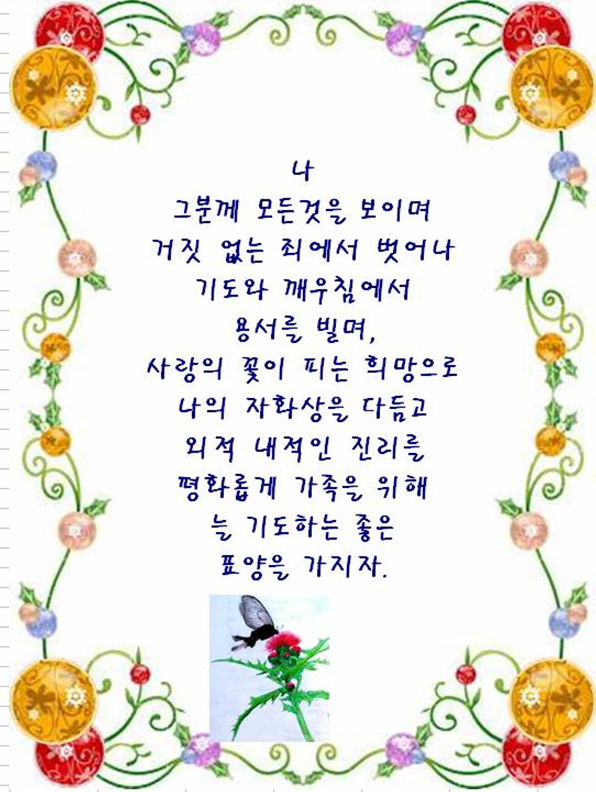 나
그분께 모든것을 보이며
거짓 없는 죄에서 벗어나
기도와 깨우침에서
용서를 빌며,
사랑의 꽃이 피는 희망으로
나의 자화상을 다듬고
외적 내적인 진리를
평화롭게 가족을 위해
늘 기도하는 좋은
표양을 가지자.